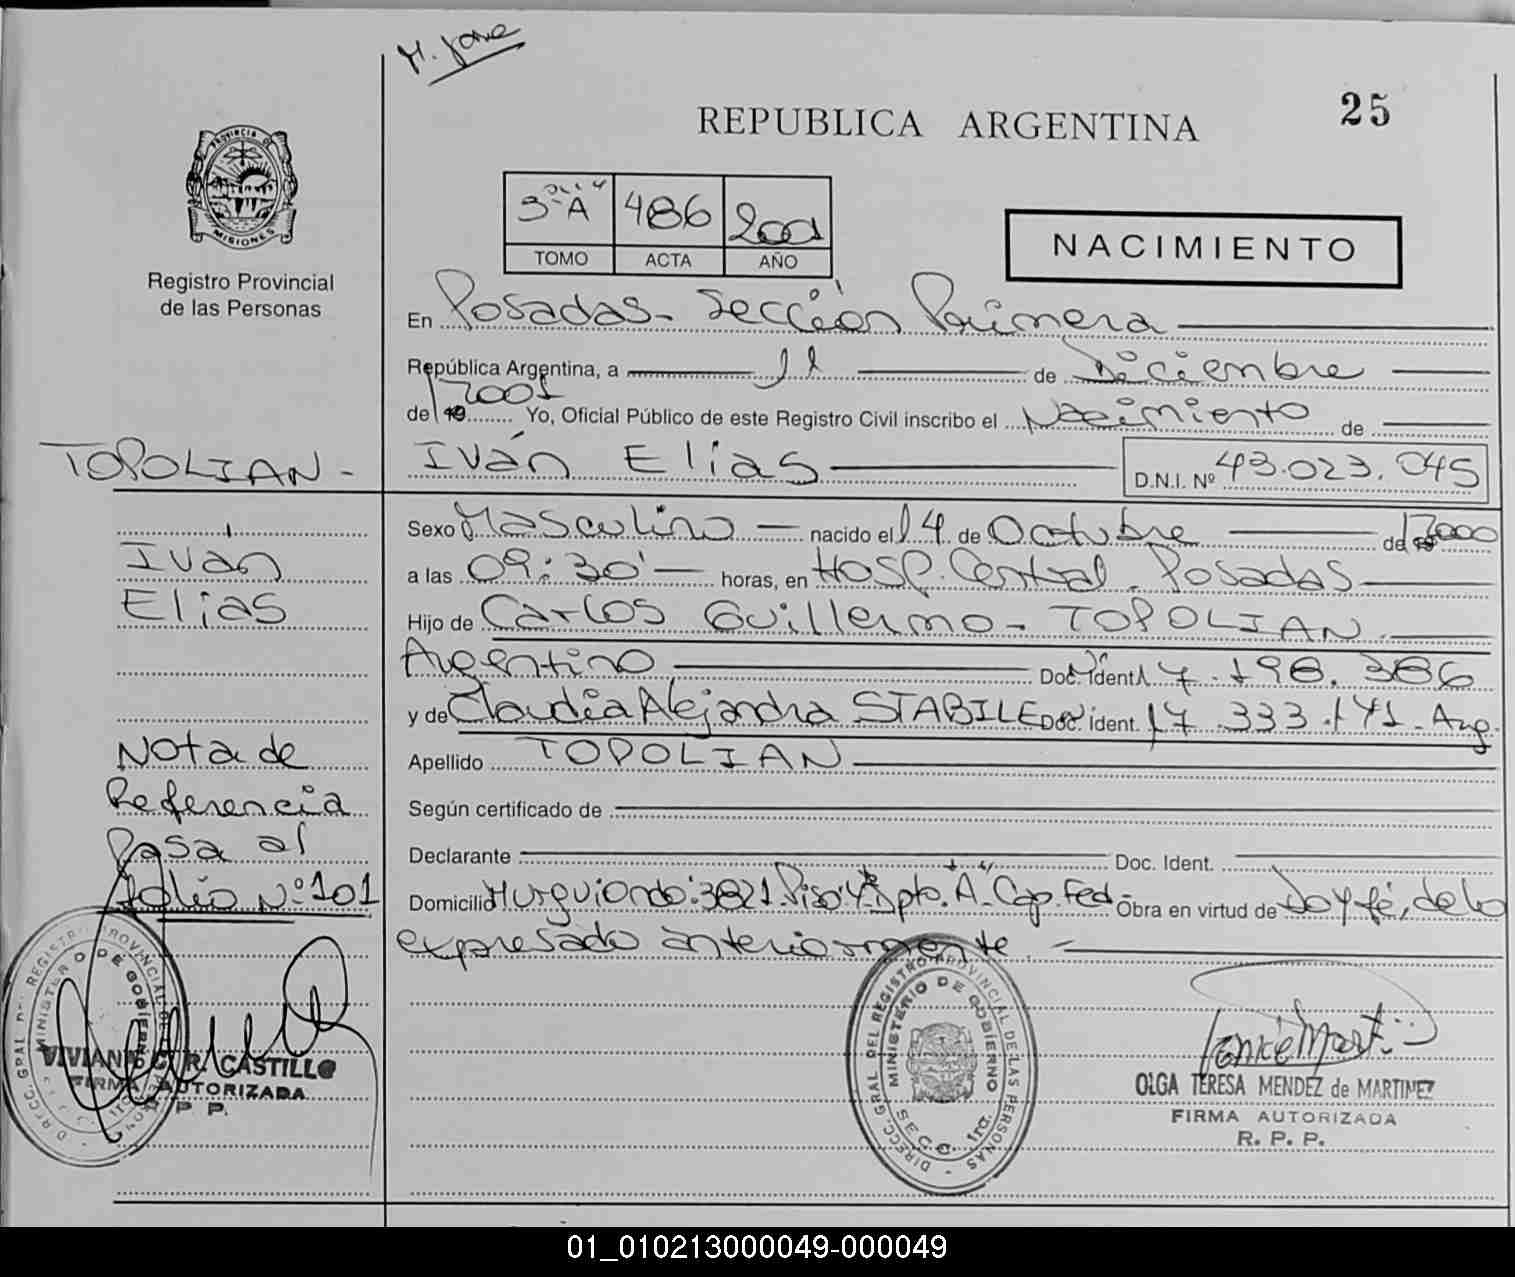 25
REPUBLICA ARGENTINA
PROVINCIA
MISIONES
Registro Provincial
de las Personas
3º "A" 486 2001
TOMO ACTA AÑO
NACIMIENTO
En Posadas - Sección Primera
República Argentina, a 11 de Diciembre
de 19 2001 Yo, Oficial Público de este Registro Civil inscribo el Nacimiento de
TOPOLIAN -
Iván Elías D.N.I. Nº 43.023.045
Iván
Elías
Sexo Masculino nacido el 14 de Octubre de 2000
a las 09:30' horas, en Hosp. Central - Posadas
Hijo de Carlos Guillermo - TOPOLIAN.
Argentino Doc. Ident. 17.198.386
y de Claudia Alejandra STABILE Doc. Ident. 17.333.171 - Arg.
Apellido TOPOLIAN
Según certificado de
Declarante Doc. Ident.
Domicilio Murguiondo: 3821 Piso Dpto. A - Cap. Fed - Obra en virtud de Doy fé, de lo
expresado anteriormente.
Nota de
Referencia
Pasa al
folio Nº 101
VIVIANA R. CASTILLO
FIRMA AUTORIZADA
R. P. P.
DIRECC. GRAL. DEL REGISTRO PROVINCIAL DE LAS PERSONAS
MINISTERIO DE GOBIERNO
SECC. 1ra.
OLGA TERESA MENDEZ de MARTINEZ
FIRMA AUTORIZADA
R. P. P.
01_010213000049-000049